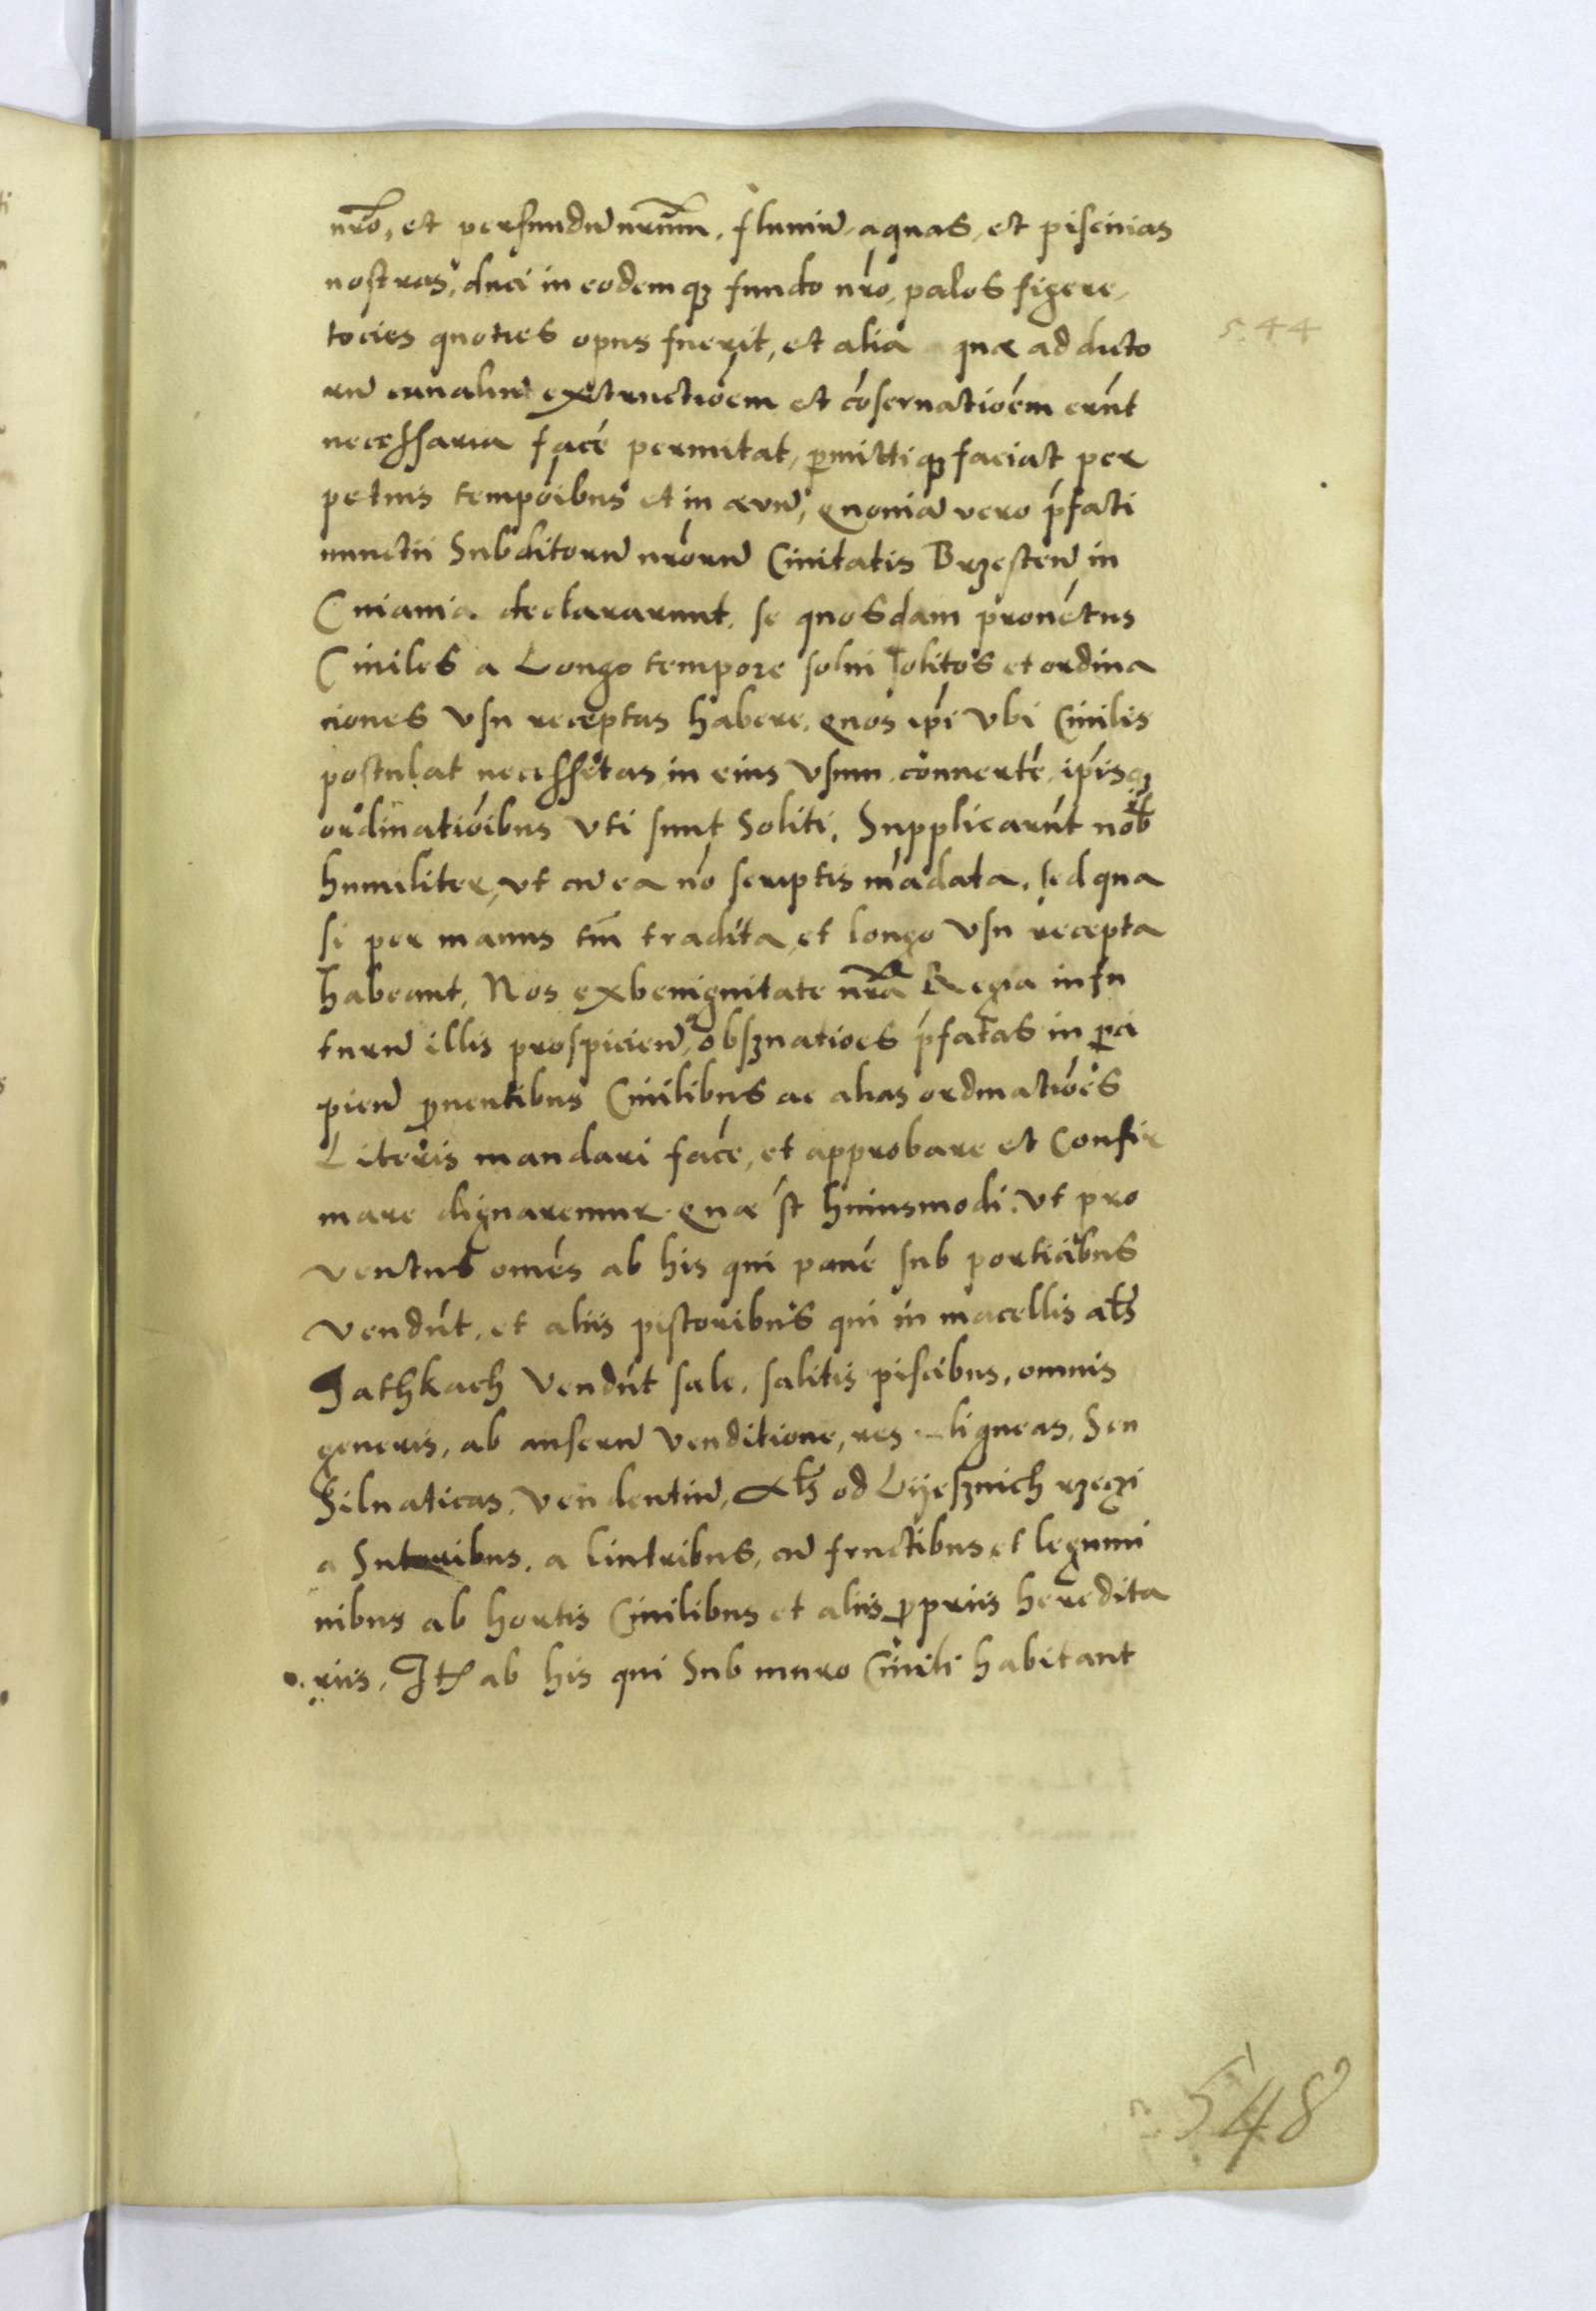 nr̄o, et per fundū nrūm, fluuiū, aquas, et piscinias
nostras, duci in eodemq; fundo nr̄o, palos figere,
tocies quoties opus fuerit, et alia quæ adducto
rū canaliū extructioēm et cōseruatioēm erūnt
necessaria facē permitat, p̄mittiq; faciat per
petuis tempoībus et in ævū, Quoniā vero p̄fati
nunctii Subditorū nr̄orū Ciuitatis Brzestēn in
Cuiauia declararunt, se quosdam prouētus
Ciuiles a Longo tempore solui solitos et ordina
ciones vsu receptas habere, quos ip̄i vbi Ciuilis
postulat necessitas, in eius vsum conuertē, ip̄isq;
ordinatioībus vti sunt Soliti, Supplicarūt nob̄
humiliter, vt cū ea nō scriptis mādata, sed qua
si per manus tm̄ tradita, et longo vsu recepta
habeant, Nos ex benignitate nr̄a Regia in fu
turū illis prospicien̄, obszuatioēs p̄fatas in p̄ci
pien̄ p̄uentibus Ciuilibus ac alias ordinatioēs
Literis mandari facē, et approbare et Confir
mare dignaremur. Quæ st̄ huiusmodi. Vt pro
ventus omēs ab his qui panē sub porticibus
vendūt, et aliis pistoribus qui in macellis al̄s
Jathkach vendūt sale, salitis piscibus, omnis
generis, ab anserū venditione, res ligneas, Seu
Siluaticas, vendentiū, al̄s od Lyesznich rzeczi
a Sutoribus, a lintribus, cū fructibus et legumi
nibus ab hortis Ciuilibus et aliis p̄priis heredita
riis, It̄ ab his qui Sub muro Ciuili habitant
544
548